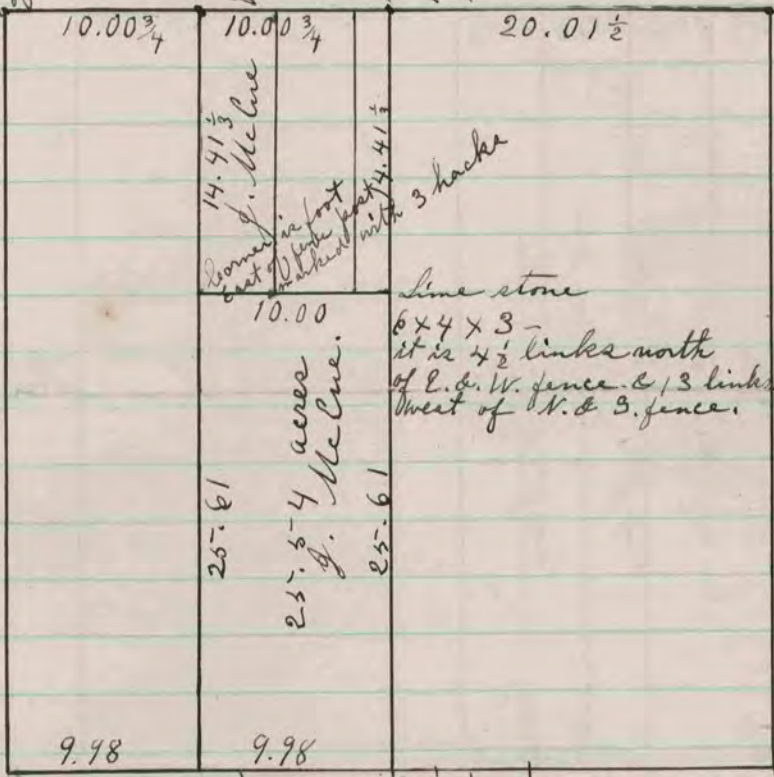 10.00 3/4
10.00 3/4
20.01 1/2
14.41 1/3
J. McCue
14.41 1/3
Corner is foot
East of fence post
marked with 3 hacks
10.00
Lime stone
6 x 4 x 3 -
it is 4 1/2 links north
of E. & W. fence. & 13 links
west of N. & S. fence.
25.61
25.54 acres
J. McCue.
25.61
9.98
9.98